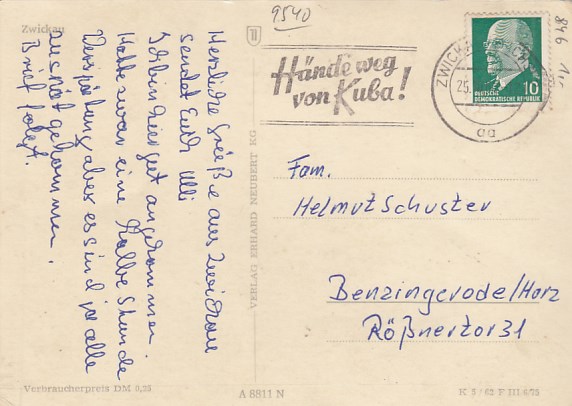 Zwickau
Herzliche Grüße aus Zwickau
sendet Euch Ulli
Ich bin hier gut angekommen.
Hatte zwar eine halbe Stunde
Verspätung aber es sind ja alle
zu spät gekommen.
Brief folgt.
Verbraucherpreis DM 0,25
VERLAG ERHARD NEUBERT KG
A 8811 N
K 5/62 F III 6/75
9540
Hände weg
von Kuba!
ZWICKAU
25.
aa
DEUTSCHE
DEMOKRATISCHE REPUBLIK
10
846
Fam.
Helmut Schuster
Benzingerode/Harz
Rößnertor 31